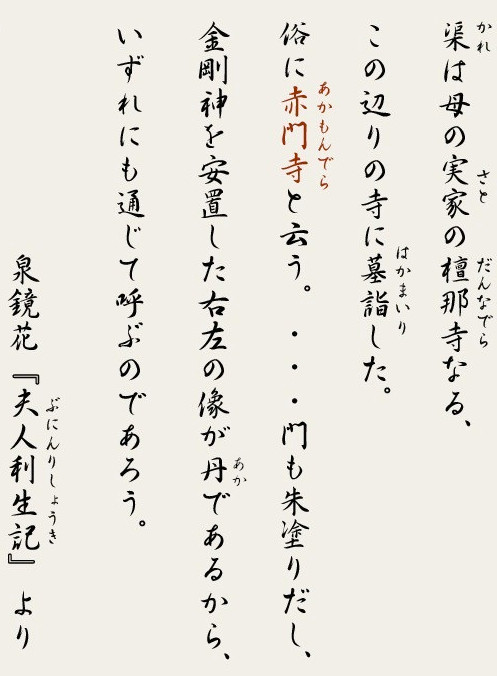 渠は母の実家の檀那寺なる、
かれ
さと
だんなでら
この辺りの寺に墓詣した。
はかまいり
俗に赤門寺と云う。・・・門も朱塗りだし、
あかもんでら
金剛神を安置した右左の像が丹であるから、
あか
いずれにも通じて呼ぶのであろう。
泉鏡花『夫人利生記』より
ぶにんりしょうき